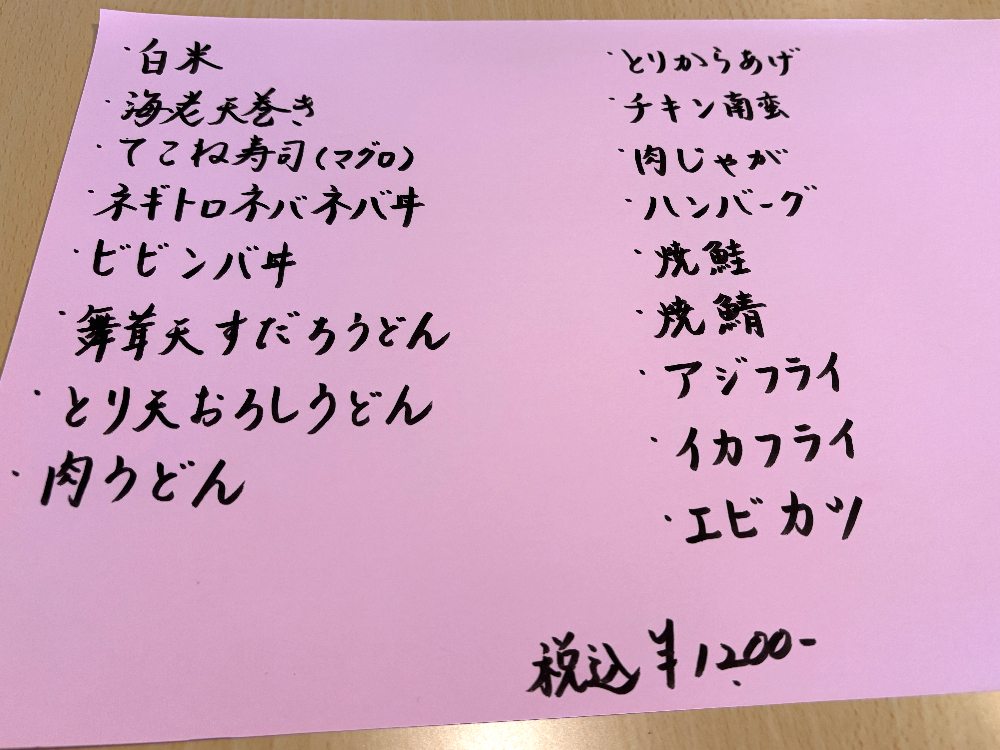 ・白米
・海老天巻き
・てこね寿司(マグロ)
・ネギトロネバネバ丼
・ビビンバ丼
・舞茸天すだちうどん
・とり天おろしうどん
・肉うどん
・とりからあげ
・チキン南蛮
・肉じゃが
・ハンバーグ
・焼鮭
・焼鯖
・アジフライ
・イカフライ
・エビカツ
税込¥1,200-